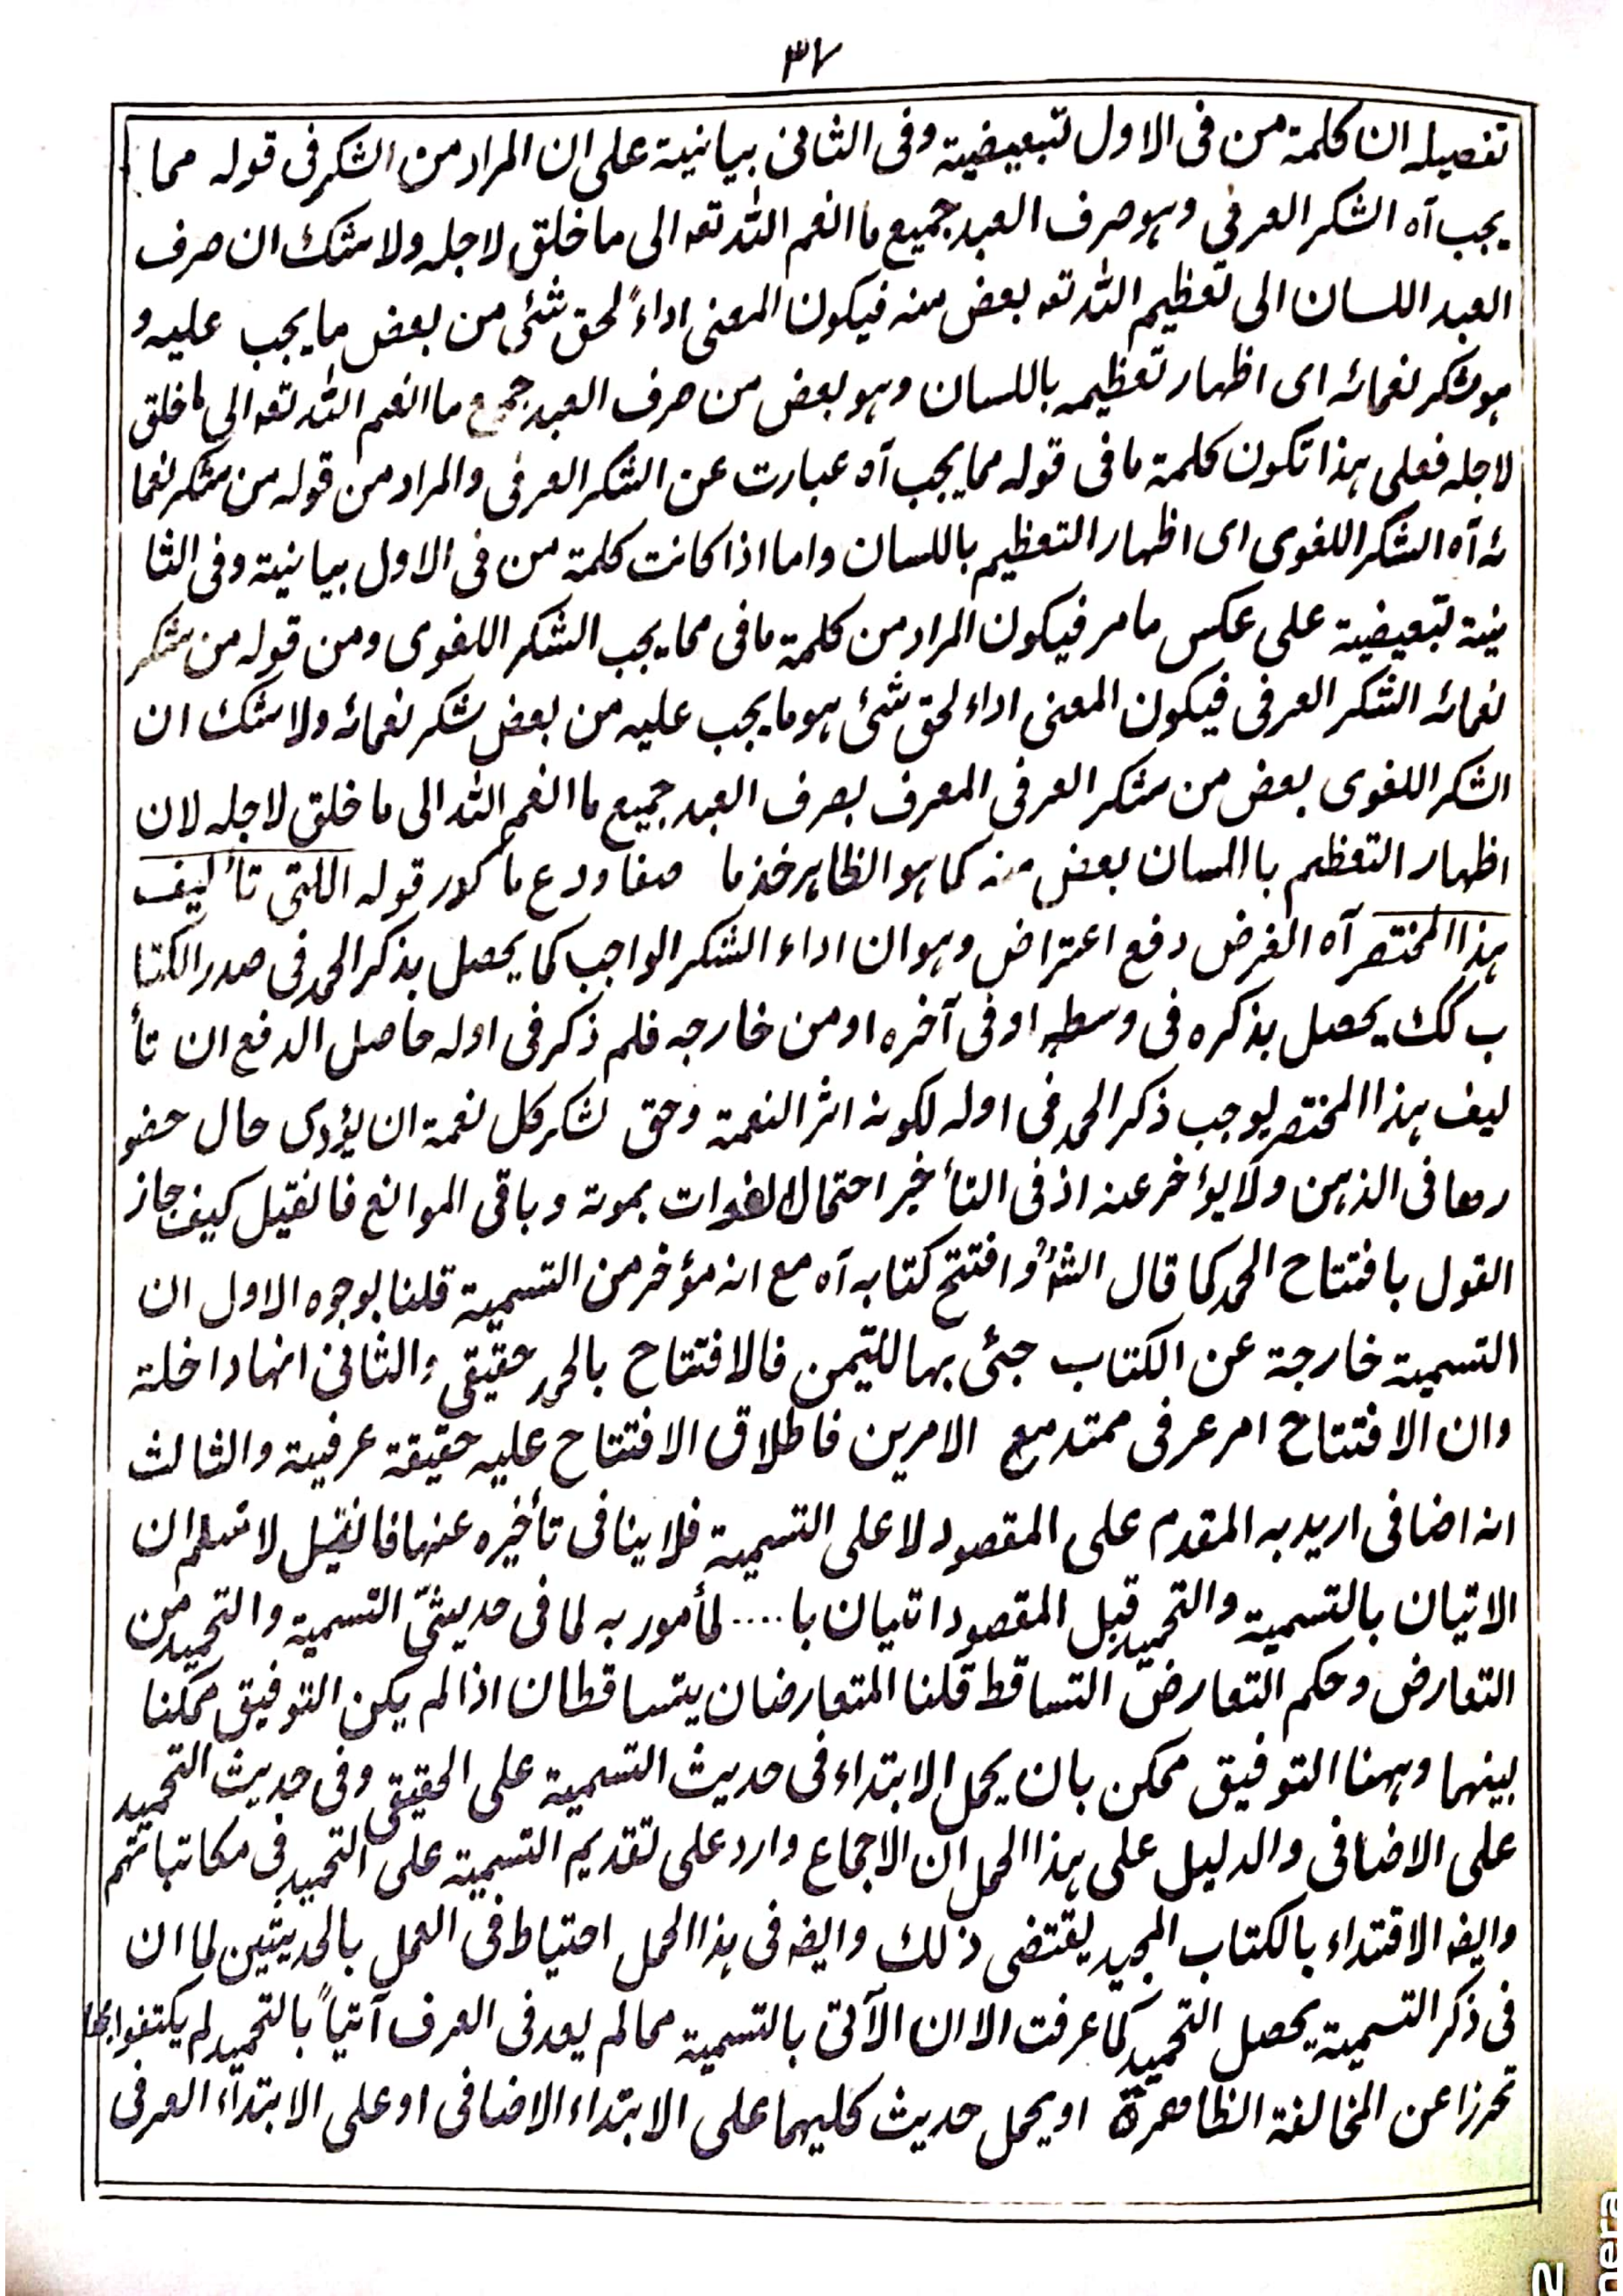 ٣٧
تفصيله ان كلمة من فى الاول تبعيضية وفى الثانى بيانية على ان المراد من الشكر فى قوله مما
يجب آه الشكر العرفي وهو صرف العبد جميع ما انعم الله تعه الى ما خلق لاجله ولا شك ان صرف
العبد اللسان الى تعظيم الله تعه بعض منه فيكون المعنى اداءً لحق شئى من بعض ما يجب عليه و
هو شكر نعمائه اى اظهار تعظيمه باللسان وهو بعض من صرف العبد جميع ما انعم الله تعه الى ما خلق
لاجله فعلى هذا تكون كلمة ما فى قوله مما يجب آه عبارت عن الشكر العرفى والمراد من قوله من شكر نعما
ئه آه الشكر اللغوى اى اظهار التعظيم باللسان واما اذا كانت كلمة من فى الاول بيانية وفى الثا
نية تبعيضية على عكس ما مر فيكون المراد من كلمة ما فى مما يجب الشكر اللغوى ومن قوله من شكر
نعمائه الشكر العرفى فيكون المعنى اداء لحق شئ هو ما يجب عليه من بعض شكر نعمائه ولا شك ان
الشكر اللغوى بعض من شكر العرفى المعرف بصرف العبد جميع ما انعم الله الى ما خلق لاجله لان
اظهار التعظم بااللسان بعض منه كما هو الظاهر خذ ما صفا ودع ما كدر قوله اللتى تأليف
هذا المختصر آه الغرض دفع اعتراض وهو ان اداء الشكر الواجب كما يحصل بذكر الحمد فى صدر الكتا
ب كك يحصل بذكره فى وسطه اوفى آخره او من خارجه فلم ذكر فى اوله حاصل الدفع ان تأ
ليف هذا المختصر يوجب ذكر الحمد فى اوله لكونه اثر النعمة وحق لشكر كل نعمة ان يؤدى حال حضو
رها فى الذهن ولا يؤخر عنه اذ فى التأخير احتمال الفوات بموته وباقى الموانع فانقيل كيف جاز
القول بافتتاح الحمد كما قال الشه وافتتح كتابه آه مع انه مؤخر من التسمية قلنا بوجوه الاول ان
التسمية خارجة عن الكتاب جئى بها للتيمن فالافتتاح بالحمد حقيقى والثانى انها داخلة
وان الافتتاح امر عرفى ممتد مع الامرين فاطلاق الافتتاح عليه حقيقة عرفية والثالث
انه اضافى اريد به المقدم على المقصود لا على التسمية فلا ينافى تأخيره عنها فانقيل لا نسلم ان
الاتيان بالتسمية والتحميد قبل المقصود اتيان با.... لمأمور به لما فى حديثىّ التسمية والتحميد من
التعارض وحكم التعارض التساقط قلنا المتعارضان يتساقطان اذا لم يكن التوفيق ممكنا
بينهما وههنا التوفيق ممكن بان يحمل الابتداء فى حديث التسمية على الحقيقى وفى حديث التحميد
على الاضافى والدليل على هذا الحمل ان الاجماع وارد على تقديم التسمية على التحميد فى مكاتباتهم
وايضه الاقتداء بالكتاب المجيد يقتضى ذلك وايضه فى هذا الحمل احتياط فى العمل بالحديثين لما ان
فى ذكر التسمية يحصل التحميد كما عرفت الا ان الآتى بالتسمية مما لم يعد فى العرف آتياً بالتحميد لم يكتفوا بها
تحرزا عن المخالفة الظاهرة او يحمل حديث كليهما على الابتداء الاضافى او على الابتداء العرفى